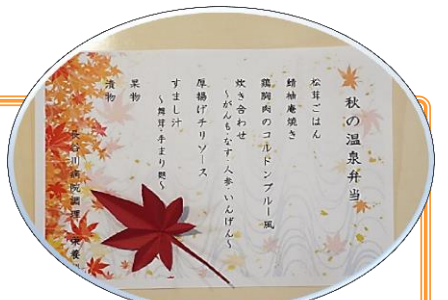 秋の温泉弁当
松茸ごはん
鯖柚庵焼き
鶏胸肉のコルドンブルー風
炊き合わせ
～がんも・なす・人参・いんげん～
厚揚げチリソース
すまし汁
～舞茸・手まり麩～
果物
漬物
長谷川病院調理・栄養